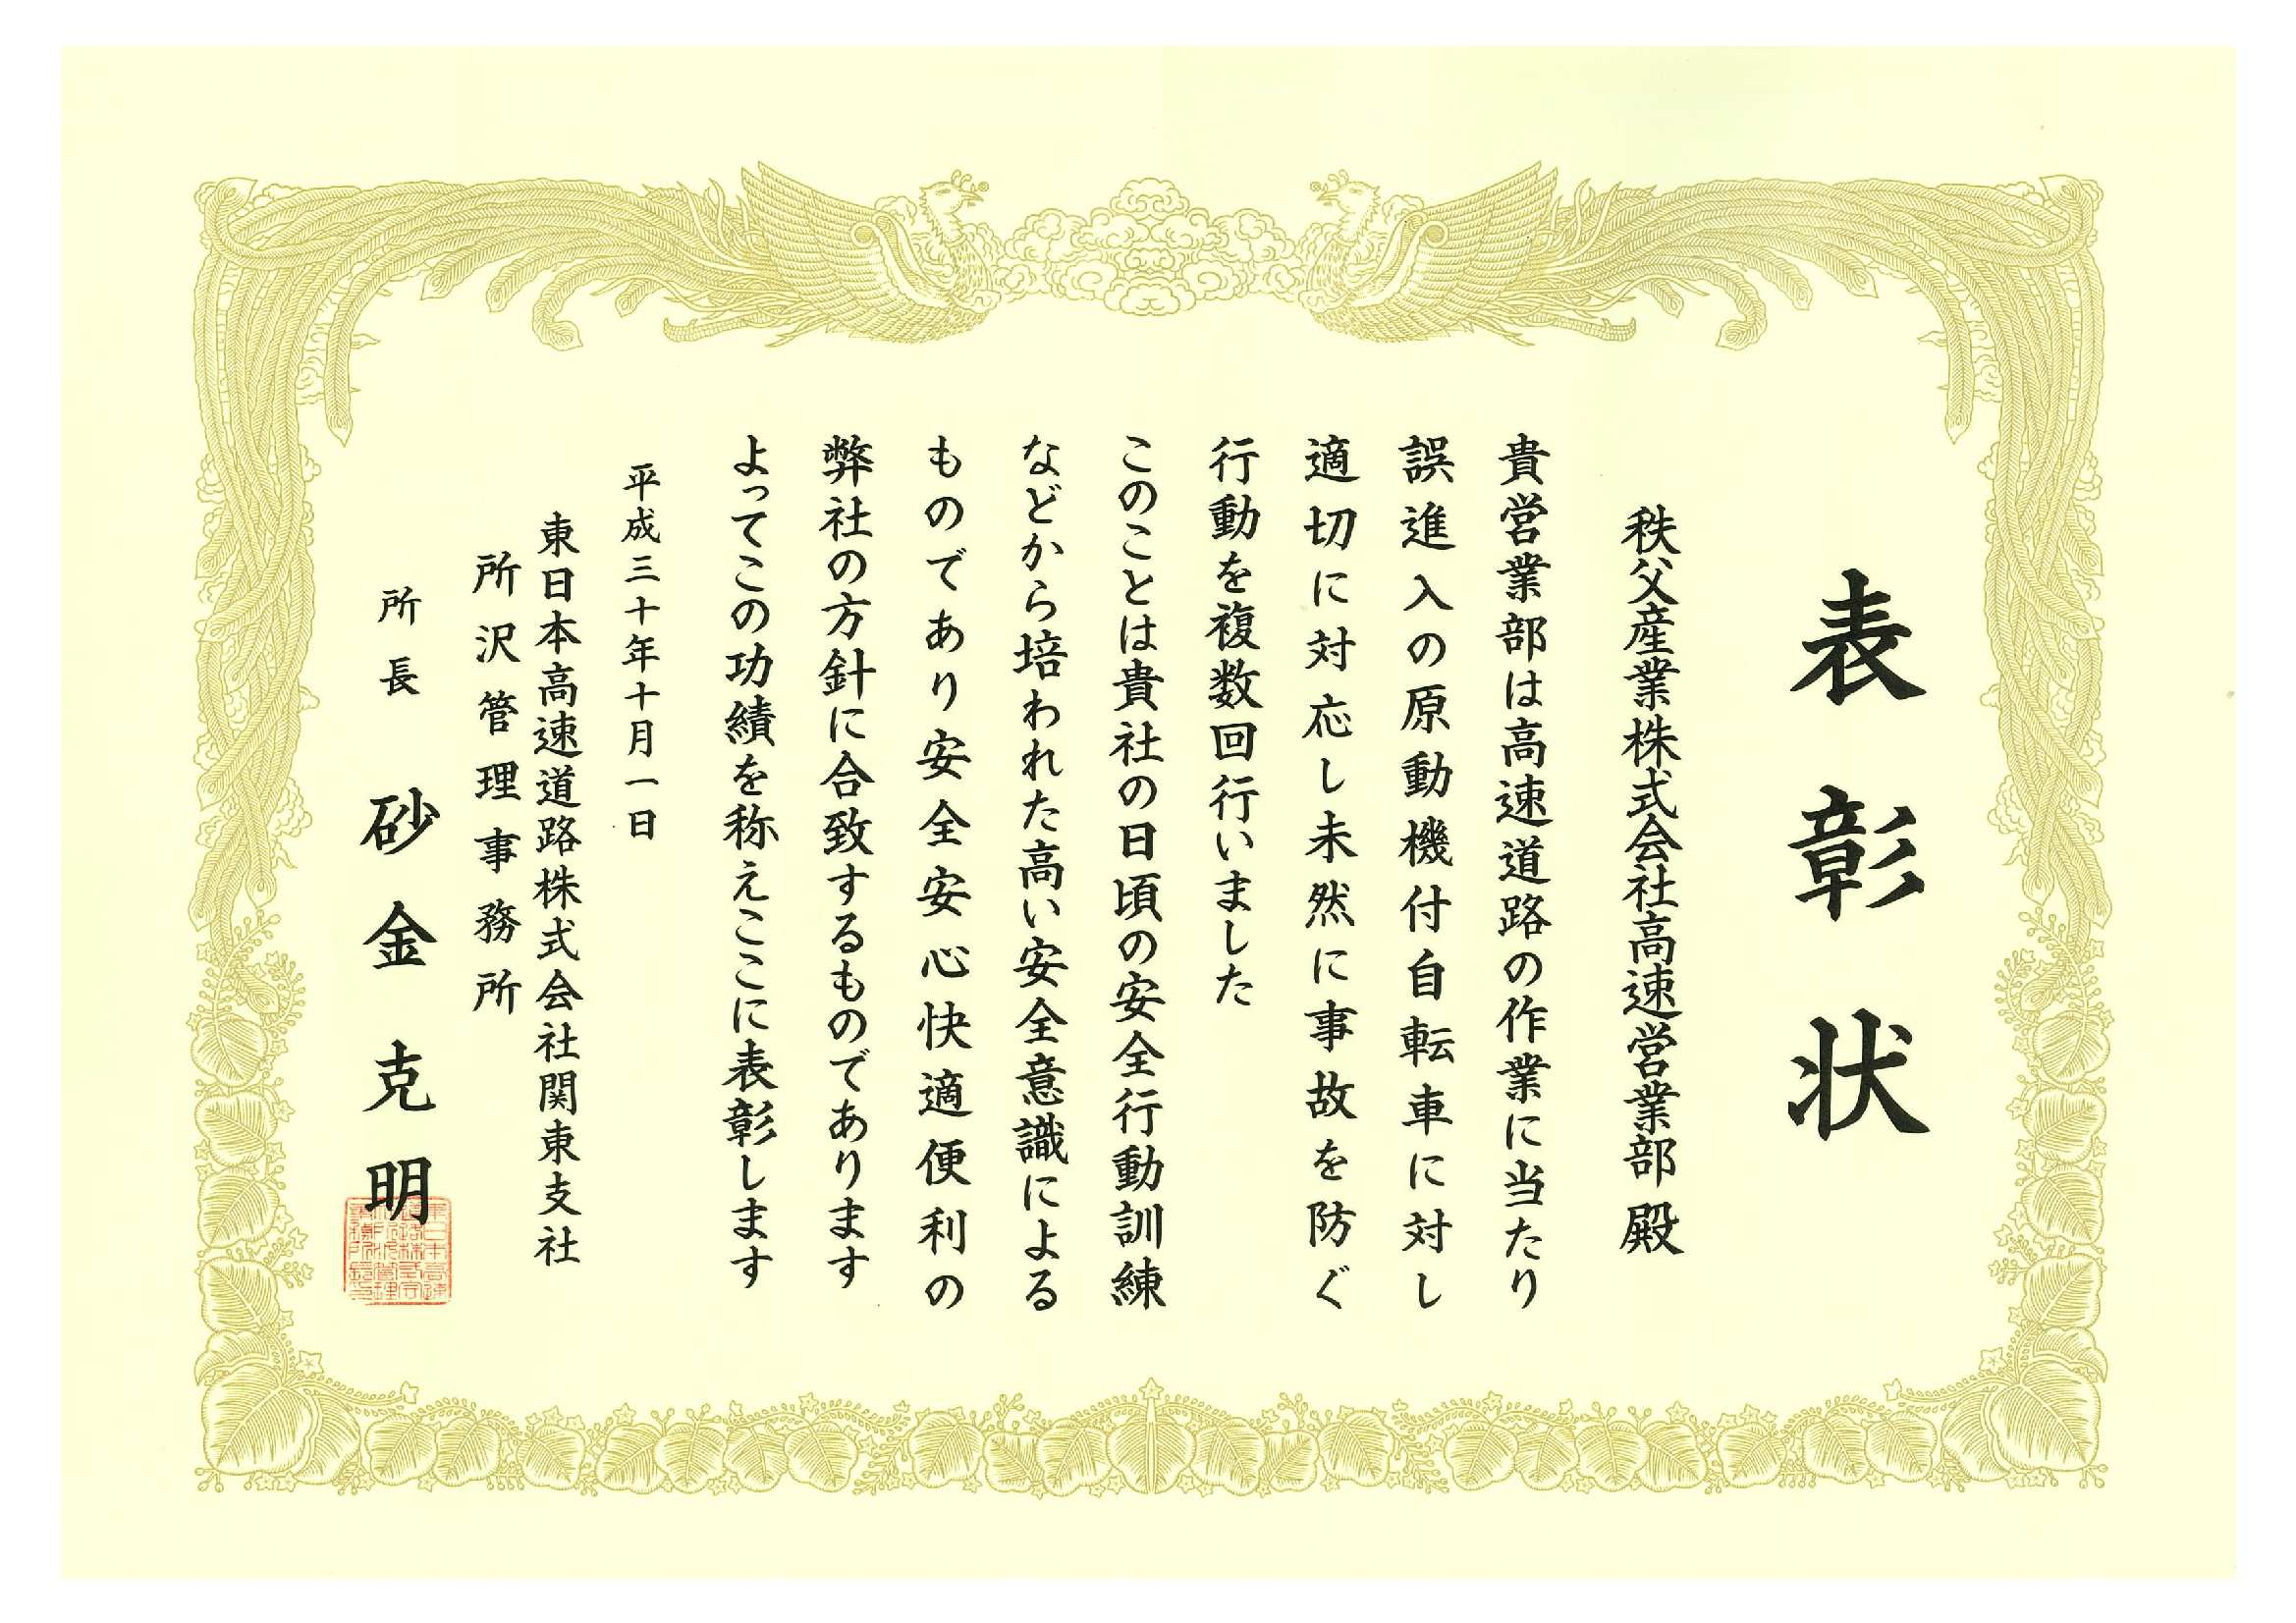 表彰状
秩父産業株式会社高速営業部殿
貴営業部は高速道路の作業に当たり
誤進入の原動機付自転車に対し
適切に対応し未然に事故を防ぐ
行動を複数回行いました
このことは貴社の日頃の安全行動訓練
などから培われた高い安全意識による
ものであり安全安心快適便利の
弊社の方針に合致するものであります
よってこの功績を称えここに表彰します
平成三十年十月一日
東日本高速道路株式会社関東支社
所沢管理事務所
所長 砂金克明